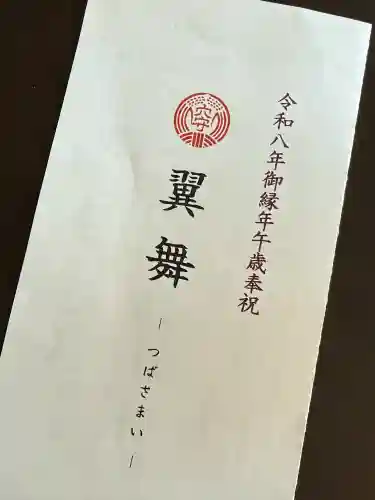 令和八年御縁年午歳奉祝
翼舞
－つばさまい－